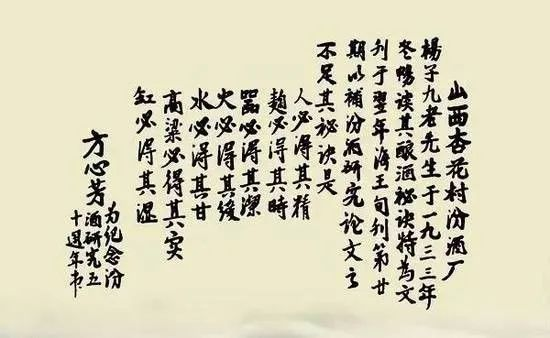 山西杏花村汾酒厂
楊子九老先生于一九三三年
冬暢谈其酿酒秘诀特為文
刊于翌年海王旬刊第廿
期以補汾酒研究论文之
不足其秘诀是
人必得其精
麹必得其時
器必得其潔
火必得其缓
水必得其甘
高粱必得其实
缸必得其湿
方心芳
为纪念汾
酒研究五
十週年书